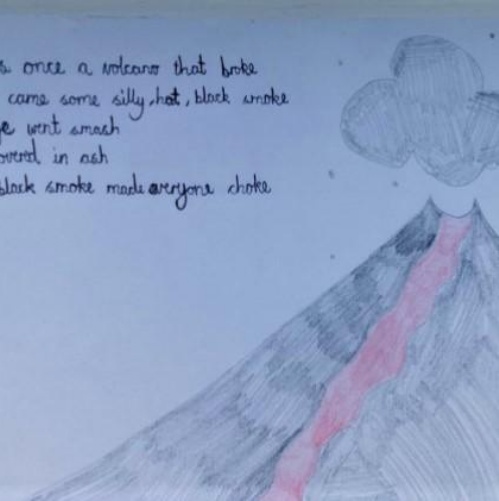 s once a volcano that broke
came some silly, hot, black smoke
ge went smash
overed in ash
black smoke made everyone choke